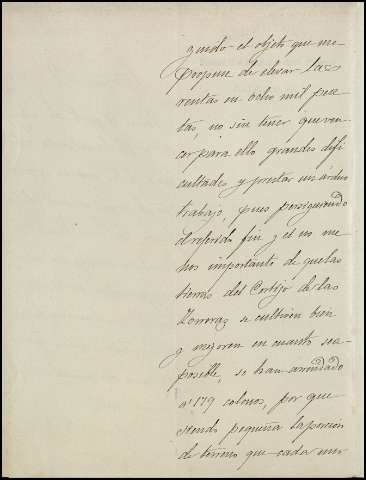 guido el objeto que me
propuse de elevar las
rentas en ocho mil pese
tas, no sin tener que ven
cer para ello grandes difi
cultades y prestar un árduo
trabajo, pues persiguiendo
el referido fin y el no me
nos importante de que las
tierras del Cortijo de las
Torreras se cultiven bien
y mejoren en cuanto sea
posible, se han arrendado
a 179 colonos, por que
siendo pequeña la porcion
de terreno que cada uno